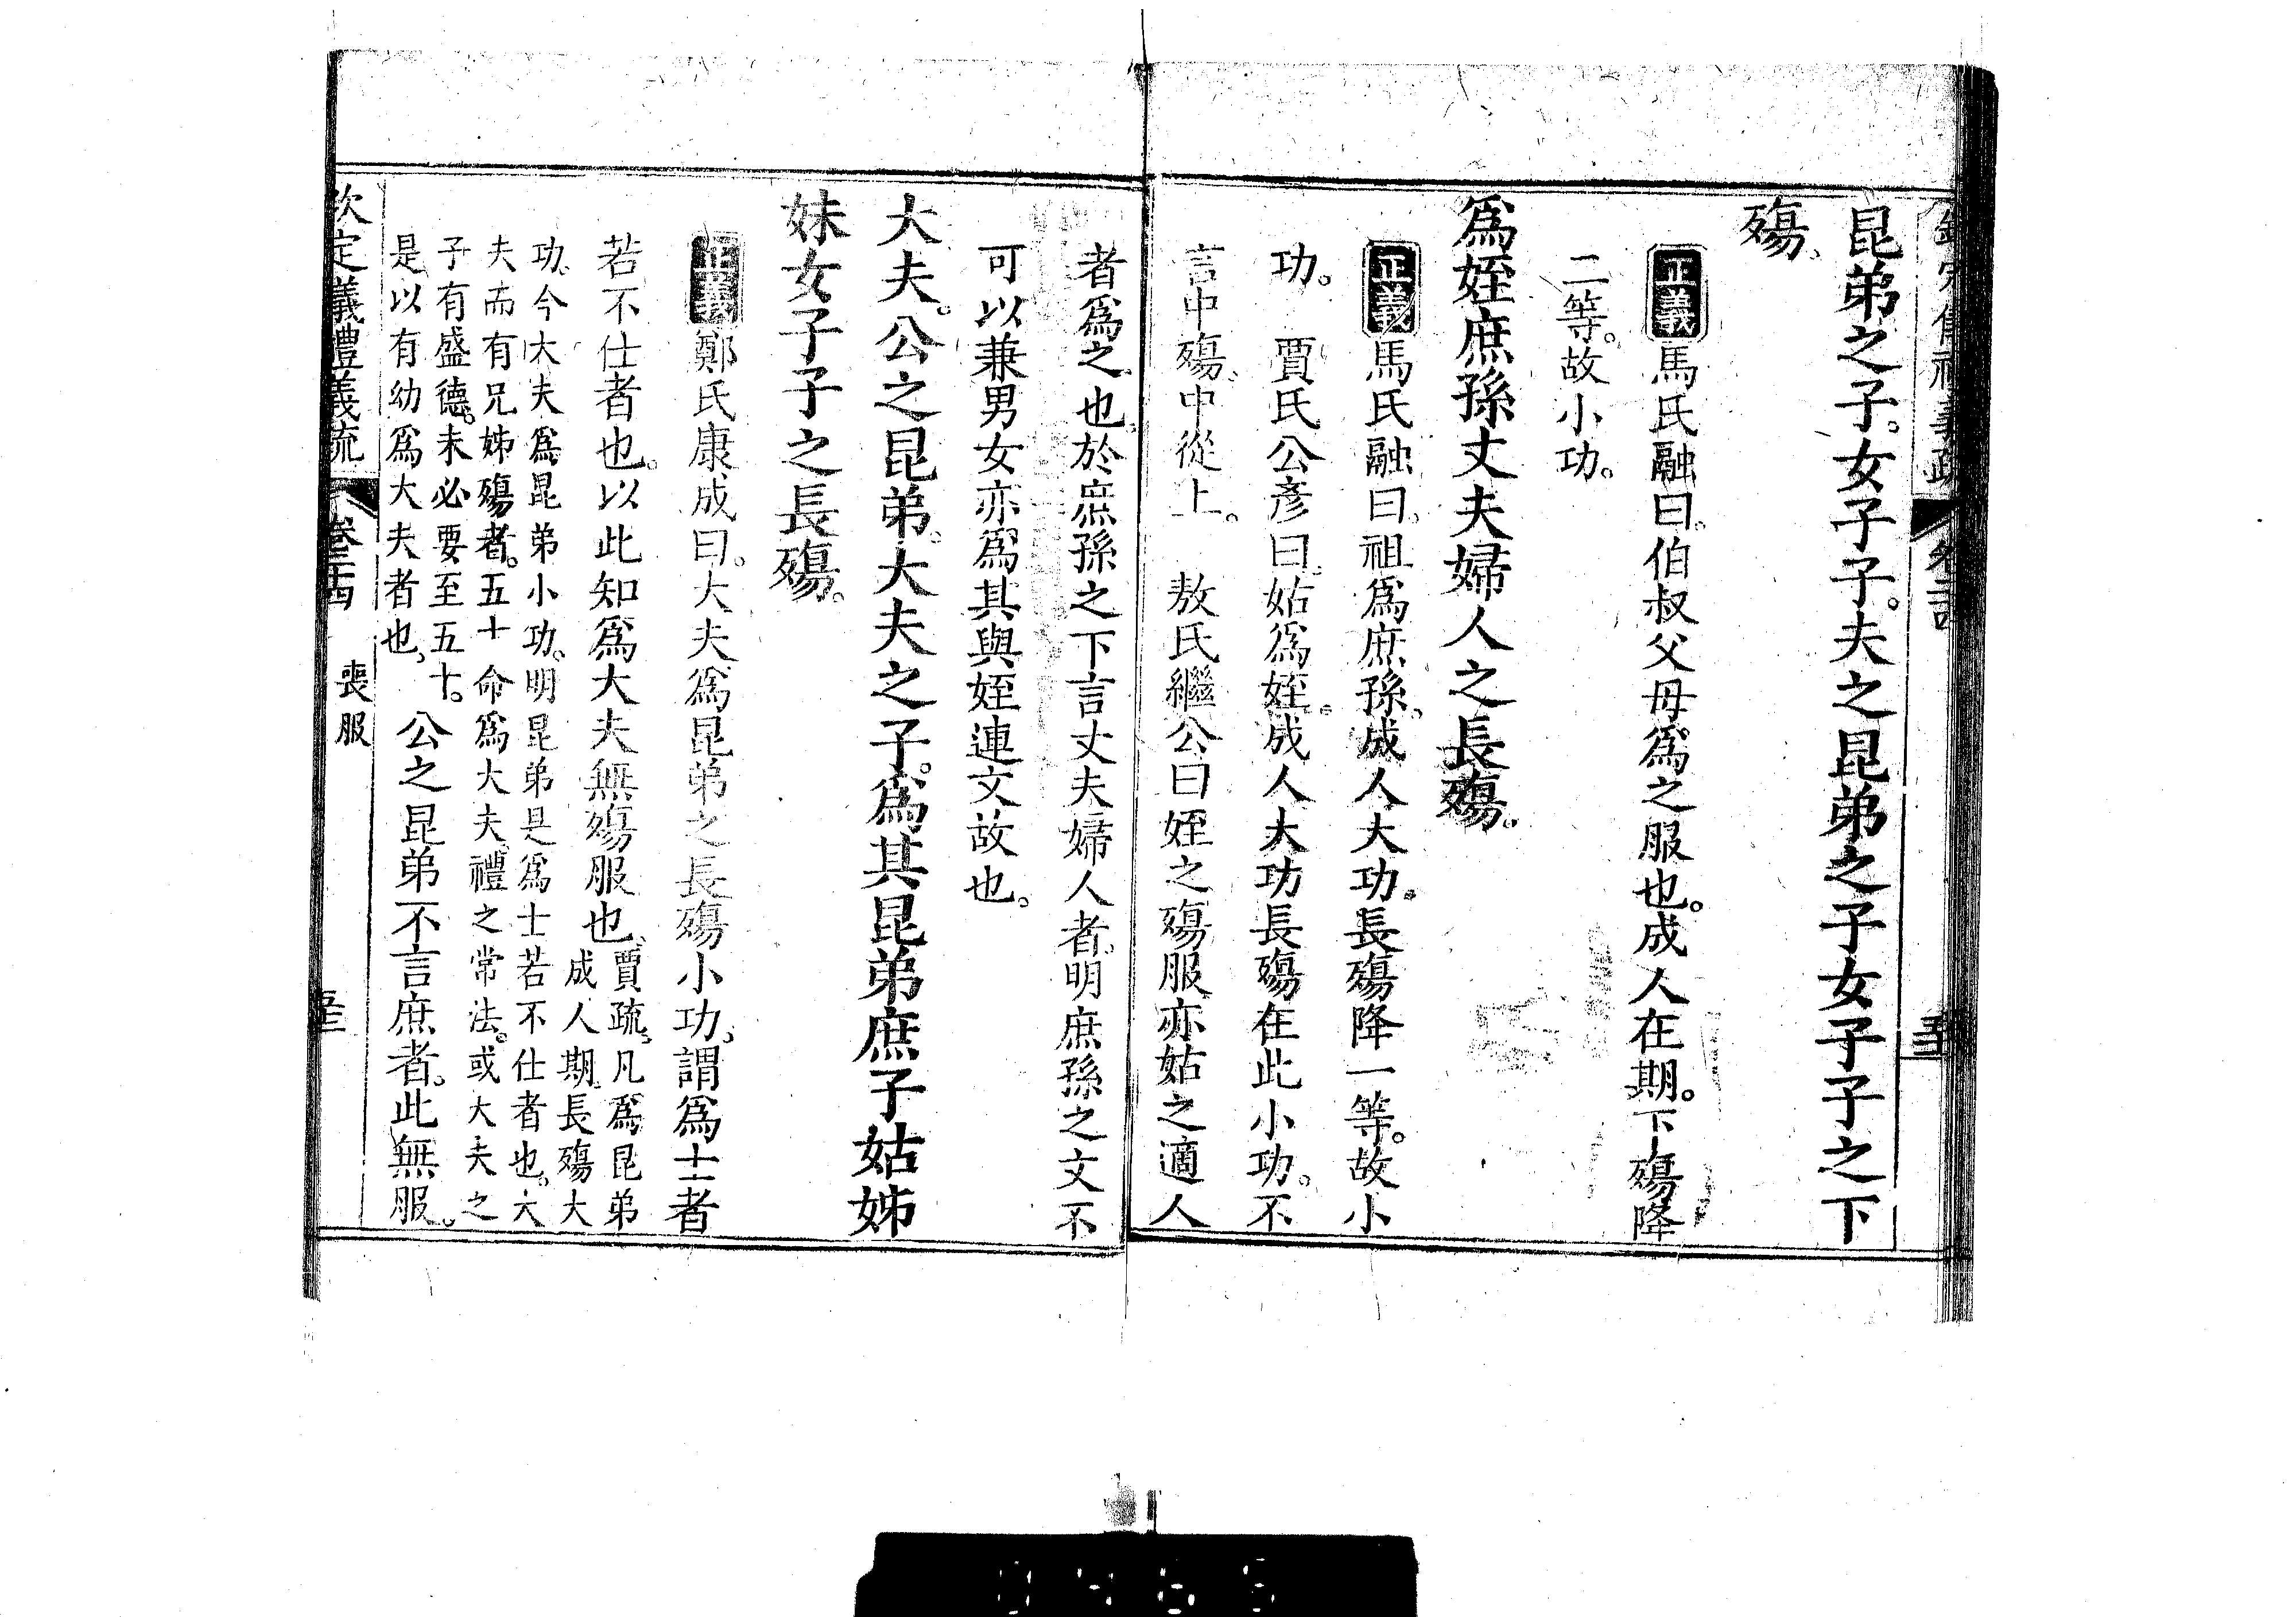 昆弟之子。女子子。夫之昆弟之子女子子之下
殤、
正義馬氏融曰。伯叔父母爲之服也。成人在期。下殤降
二等。故小功。
爲姪庶孫丈夫婦人之長殤。
正義馬氏融曰。祖爲庶孫。成人大功。長殤降一等。故小
功。 賈氏公彥曰。姑爲姪。成人大功長殤在此小功。不
言中殤、中從上。 敖氏繼公曰姪之殤服亦姑之適人
者爲之也、於庶孫之下言丈夫婦人者。明庶孫之文不
可以兼男女亦爲其與姪連文故也。
大夫。公之昆弟。大夫之子。爲其昆弟庶子姑姊
妹女子子之長殤。
正義鄭氏康成曰。大夫爲昆弟之長殤小功、謂爲士者
若不仕者也。以此知爲大夫無殤服也、賈疏、凡爲昆弟
成人期、長殤大
功。今大夫爲昆弟小功。明昆弟是爲士若不仕者也。大
夫而有兄姊殤者。五十命爲大夫。禮之常法。或大夫之
子有盛德。未必要至五十。
是以有幼爲大夫者也、 公之昆弟不言庶者。此無服。
欽定儀禮義疏 卷二十四 喪服